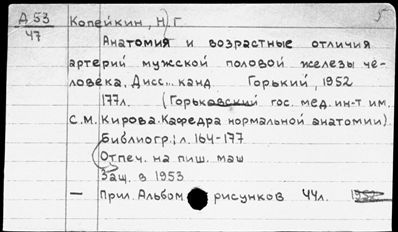 Д 53
47
Копейкин, Н.Г.
5
Анатомия и возрастные отличия
артерий мужской половой железы че-
ловека. Дисс... канд. Горький, 1952
177л. (Горьковский гос. мед. ин-т им.
С.М. Кирова. Кафедра нормальной анатомии).
Библиогр.: л. 164-177
Отпеч. на пиш. маш
Защ. в 1953
— Прил. Альбом рисунков 44л. 1952